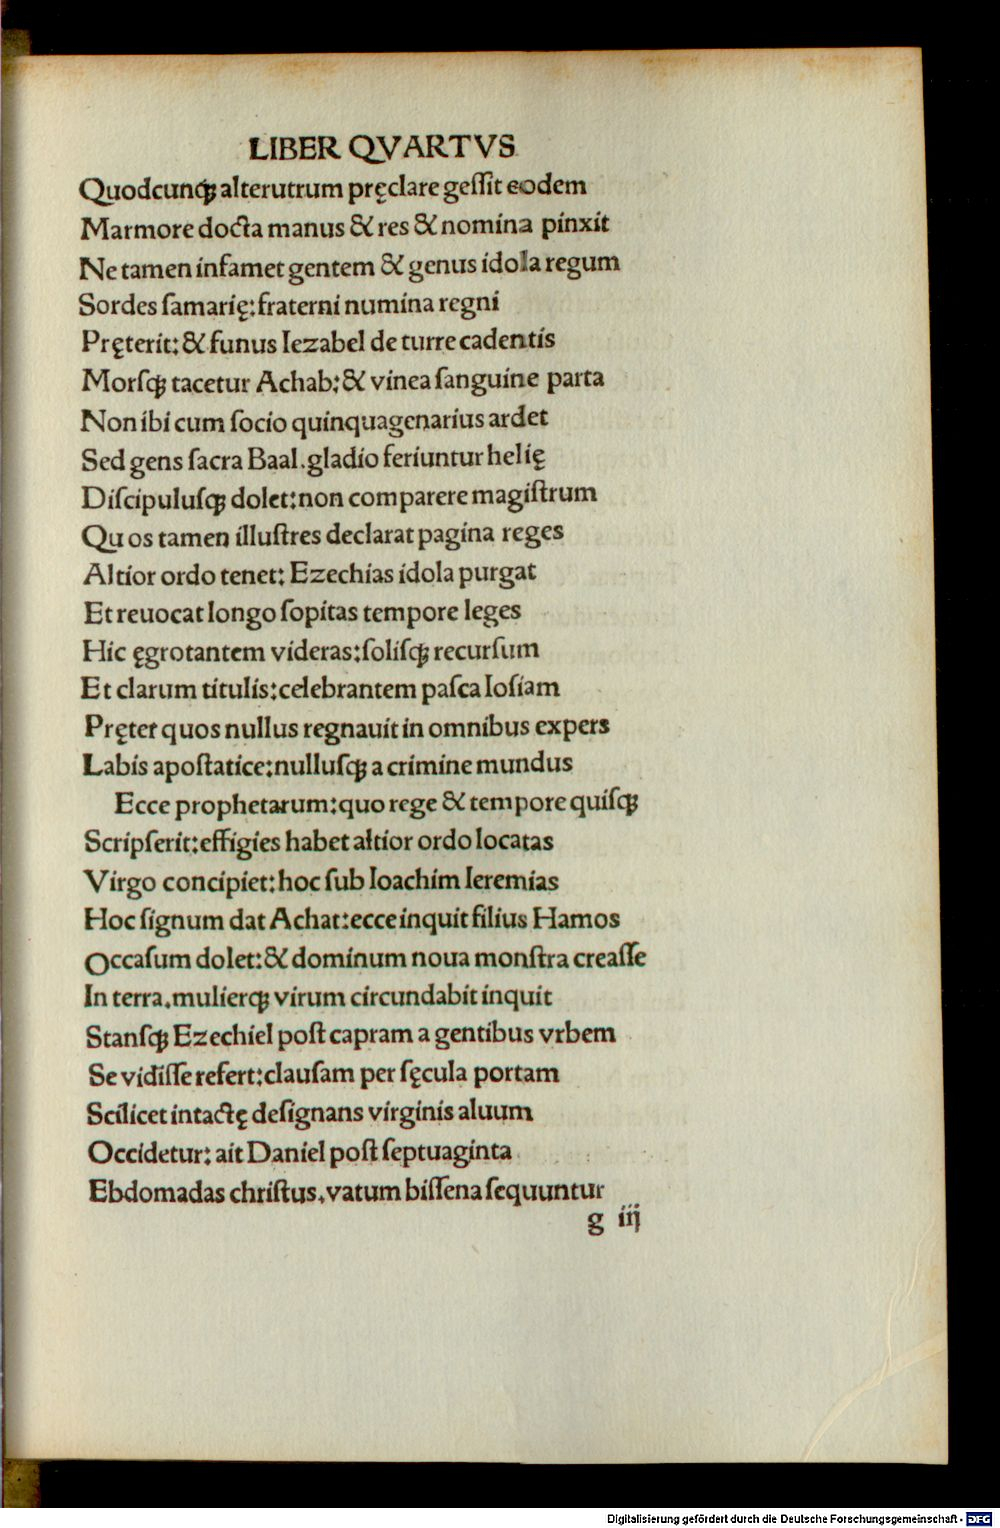 LIBER QVARTVS
Quodcunqꝫ alterutrum pręclare geſſit eodem
Marmore docta manus & res & nomina pinxit
Ne tamen infamet gentem & genus idola regum
Sordes ſamarię: fraterni numina regni
Pręterit: & funus Iezabel de turre cadentis
Morſqꝫ tacetur Achab: & vinea ſanguine parta
Non ibi cum ſocio quinquagenarius ardet
Sed gens ſacra Baal. gladio feriuntur helię
Diſcipuluſqꝫ dolet: non comparere magiſtrum
Quos tamen illuſtres declarat pagina reges
Altior ordo tenet: Ezechias idola purgat
Et reuocat longo ſopitas tempore leges
Hic ęgrotantem videras: ſoliſqꝫ recurſum
Et clarum titulis: celebrantem paſca Ioſiam
Pręter quos nullus regnauit in omnibus expers
Labis apoſtatice: nulluſqꝫ a crimine mundus
Ecce prophetarum: quo rege & tempore quiſqꝫ
Scripſerit: effigies habet altior ordo locatas
Virgo concipiet: hoc ſub Ioachim Ieremias
Hoc ſignum dat Achat: ecce inquit filius Hamos
Occaſum dolet: & dominum noua monſtra creaſſe
In terra. mulierqꝫ virum circundabit inquit
Stanſqꝫ Ezechiel poſt capram a gentibus vrbem
Se vidiſſe refert: clauſam per ſęcula portam
Scilicet intactę deſignans virginis aluum
Occidetur: ait Daniel poſt ſeptuaginta
Ebdomadas chriſtus. vatum biſſena ſequuntur
g iij
Digitalisierung gefördert durch die Deutsche Forschungsgemeinschaft - DFG